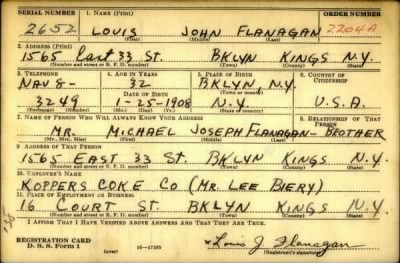 SERIAL NUMBER 1. NAME (Print) ORDER NUMBER
2652 LOUIS JOHN FLANAGAN 2204A
(First) (Middle) (Last)
2. ADDRESS (Print)
1565 East 33 St. BKLYN KINGS N.Y.
(Number and street or R. F. D. number) (Town) (County) (State)
3. TELEPHONE 4. AGE IN YEARS 5. PLACE OF BIRTH 6. COUNTRY OF CITIZENSHIP
NAV 8- 32 BKLYN N.Y.
DATE OF BIRTH (Town or county)
3249 1-25-1908 N.Y. U.S.A.
(Exchange) (Number) (Mo.) (Day) (Yr.) (State or country)
7. NAME OF PERSON WHO WILL ALWAYS KNOW YOUR ADDRESS 8. RELATIONSHIP OF THAT PERSON
MR. MICHAEL JOSEPH FLANAGAN - BROTHER
(Mr., Mrs., Miss) (First) (Middle) (Last)
9. ADDRESS OF THAT PERSON
1565 EAST 33 ST. BKLYN KINGS N.Y.
(Number and street or R. F. D. number) (Town) (County) (State)
10. EMPLOYER'S NAME
KOPPERS COKE CO (MR. LEE BIERY)
11. PLACE OF EMPLOYMENT OR BUSINESS
16 COURT ST. BKLYN KINGS N.Y.
(Number and street or R. F. D. number) (Town) (County) (State)
I AFFIRM THAT I HAVE VERIFIED ABOVE ANSWERS AND THAT THEY ARE TRUE.
REGISTRATION CARD
D. S. S. Form 1 16—17105 x Louis J. Flanagan
(Registrant's signature)